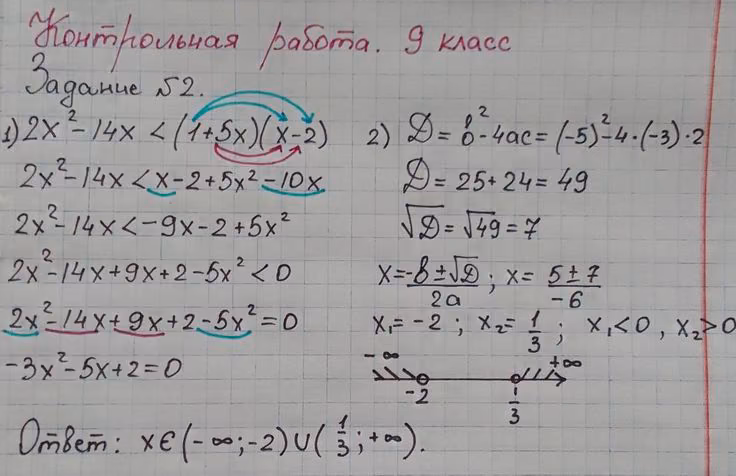 Контрольная работа. 9 класс
Задание №2.
1) 2x² - 14x < (1+5x)(x-2)
2x² - 14x < x - 2 + 5x² - 10x
2x² - 14x < -9x - 2 + 5x²
2x² - 14x + 9x + 2 - 5x² < 0
2x² - 14x + 9x + 2 - 5x² = 0
-3x² - 5x + 2 = 0
2) D = b² - 4ac = (-5)² - 4·(-3)·2
D = 25 + 24 = 49
√D = √49 = 7
x = -b ± √D / 2a ; x = 5 ± 7 / -6
x₁ = -2 ; x₂ = 1/3 ; x₁ < 0, x₂ > 0
-∞ +∞
-2 1/3
Ответ: x ∈ (-∞; -2) ∪ (1/3; +∞).